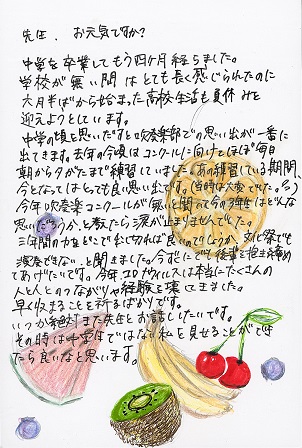 先生、お元気ですか?
中学を卒業してもう四ヶ月経ちました。
学校が無い間はとても長く感じられたのに
六月半ばから始まった高校生活も夏休みを
迎えようとしています。
中学の頃を思いだすと吹奏楽部での思い出が一番に
出てきます。去年の今頃はコンクールに向けてほぼ毎日
朝から夕がたまで練習していました。あの練習している期間、
今となってはとっても良い思い出です。(当時は大変でした。)
今年吹奏楽コンクールが無いと聞いて今の3年生はどんな
思いだろうか、と考えたら涙が止まりませんでした。
三年間の力をどこで出し切れば良いのでしょうか、文化祭でも
演奏できない、と聞きました。今すぐにでも後輩を抱き締め
てあげたいです。今年、コロナウイルスは本当にたくさんの
人と人とのつながりや経験を奪ってきました。
早く収まることを祈るばかりです。
いつか絶対また先生とお話ししたいです。
その時は中学生ではない私を見せることができ
たら良いなと思います。